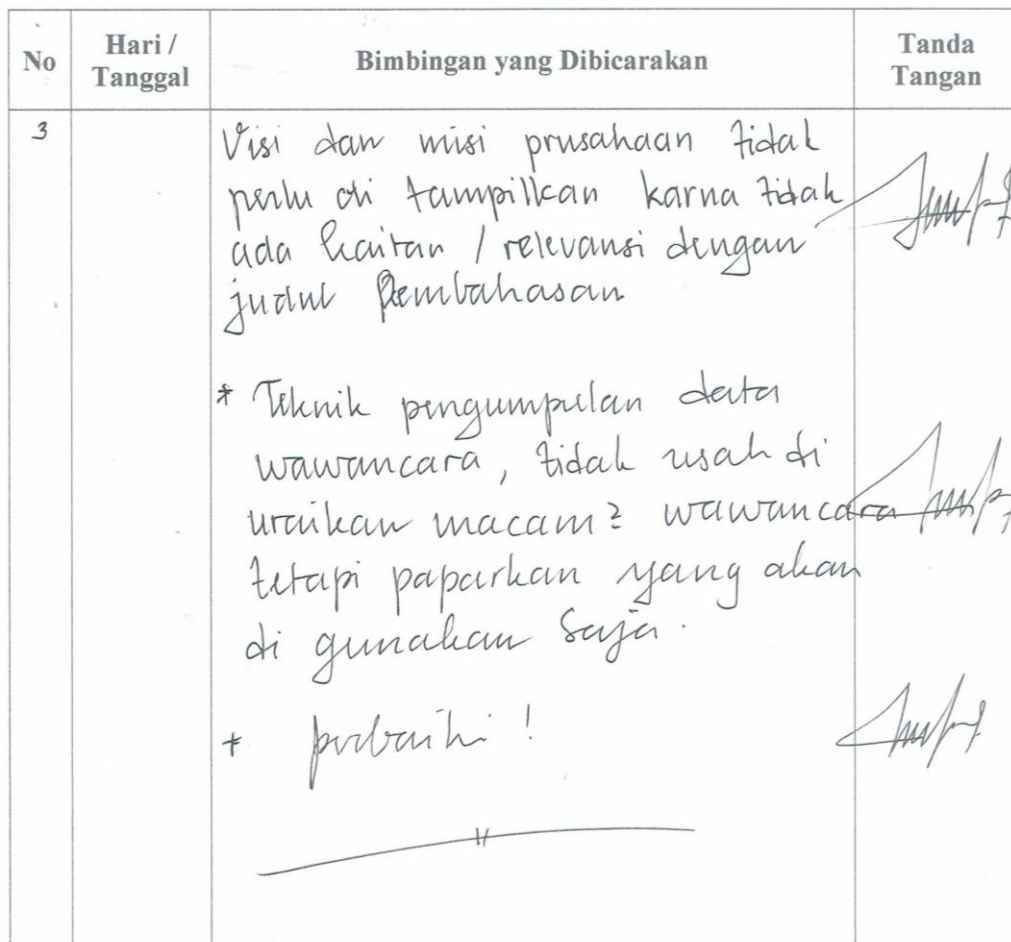 No
Hari /
Tanggal
Bimbingan yang Dibicarakan
Tanda
Tangan
3
Visi dan misi prusahaan tidak
perlu di tampilkan karna tidak
ada kaitan / relevansi dengan
judul Pembahasan
* Teknik pengumpulan data
wawancara, tidak usah di
uraikan macam2 wawancara
tetapi paparkan yang akan
di gunakan saja.
* perbaiki!